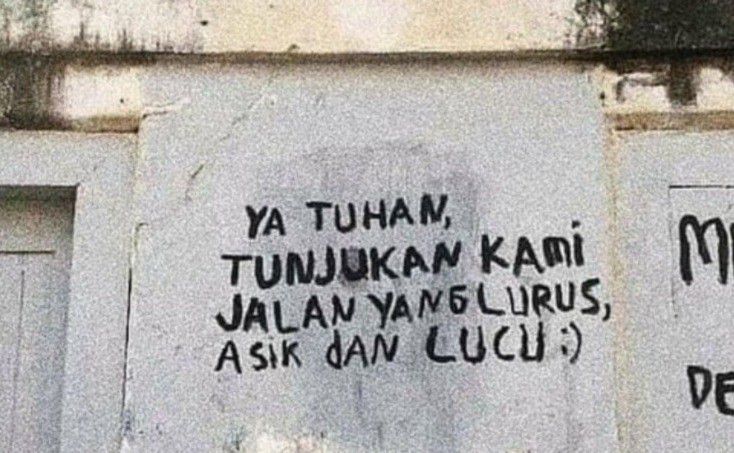 YA TUHAN,
TUNJUKAN KAMi
JALAN YANG LURUS,
ASiK dAN LUCU :)
M
DE